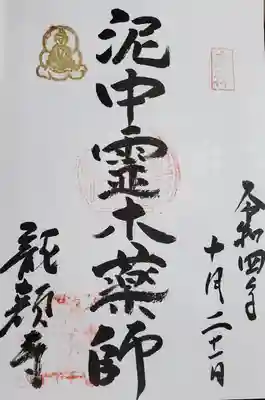 令和四年
十月二十一日
泥中霊木薬師
龍顔寺